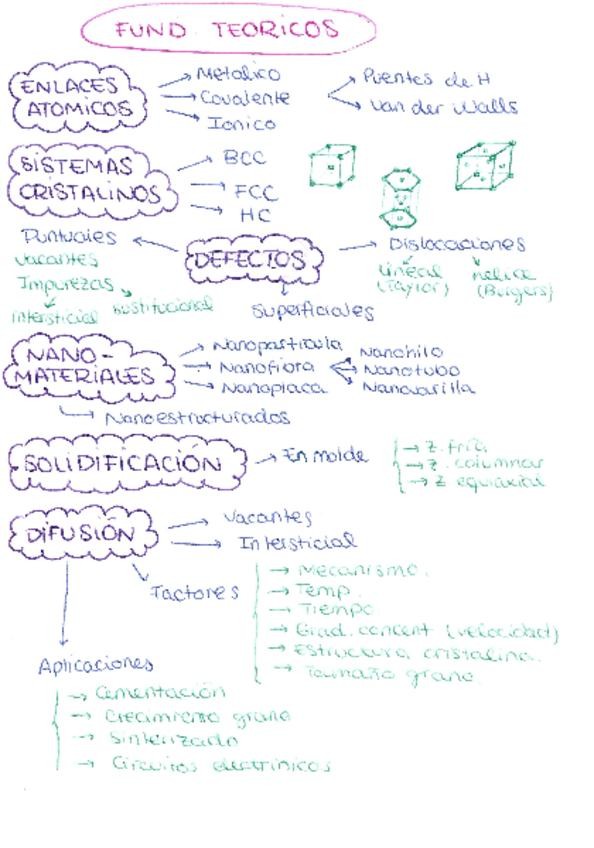 FUND TEORICOS
ENLACES ATOMICOS
Metalico
Covalente
Ionico
Puentes de H
Van der Walls
SISTEMAS CRISTALINOS
BCC
FCC
HC
DEFECTOS
Puntuales
Vacantes
Impurezas
intersticial sustitucional
Dislocaciones
Lineal (Taylor)
helice (Burgers)
Superficiales
NANO-MATERIALES
Nanoparticula
Nanofibra
Nanoplaca
Nanohilo
Nanotubo
Nanovarilla
Nanoestructurados
SOLIDIFICACIÓN
En molde
Z. fría
Z. columnar
Z equiaxial
DIFUSIÓN
Vacantes
Intersticial
Factores
Mecanismo.
Temp.
Tiempo
Grad. concent (velocidad)
Estructura cristalina.
Tamaño grano.
Aplicaciones
Cementación
Crecimiento grano
Sinterizado
Circuitos electrónicos